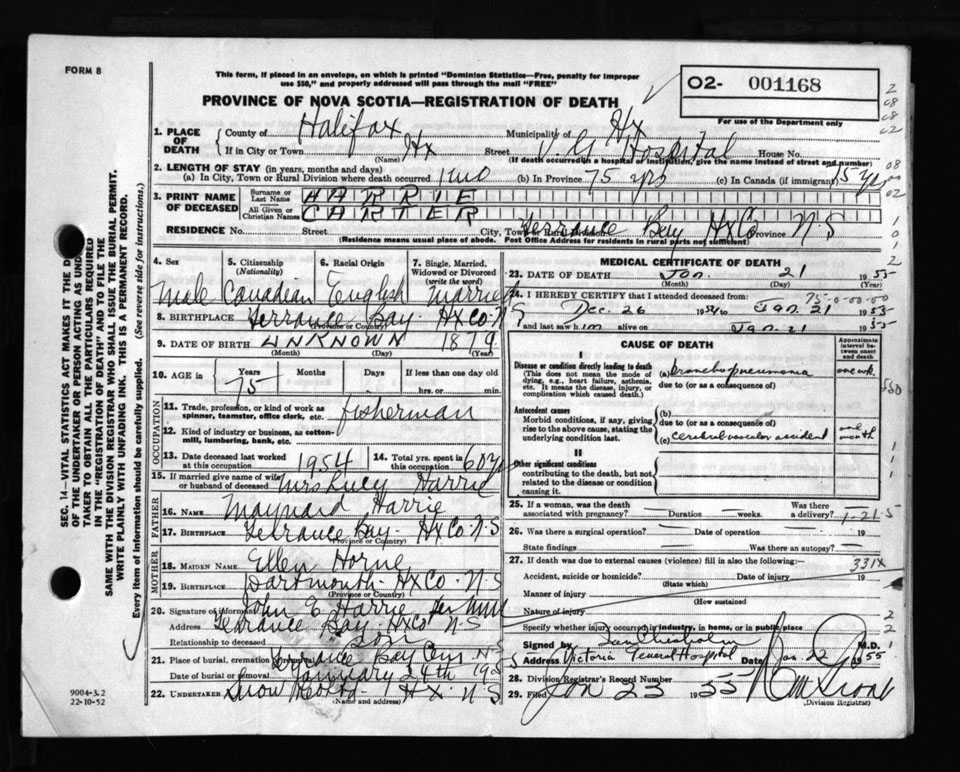 FORM 8
This form, if placed in an envelope, on which is printed "Dominion Statistics—Free, penalty for improper
use $50," and properly addressed will pass through the mail "FREE"
PROVINCE OF NOVA SCOTIA—REGISTRATION OF DEATH
O2- 001168
For use of the Department only
1. PLACE OF DEATH { County of Halifax Municipality of Hx
If in City or Town Hx (Name) Street V. G. Hospital House No.
(If death occurred in a hospital or institution, give the name instead of street and number)
2. LENGTH OF STAY (in years, months and days)
(a) In City, Town or Rural Division where death occurred 1 mo (b) In Province 75 yrs (c) In Canada (if immigrant) 75 yrs
3. PRINT NAME OF DECEASED { Surname or Last Name HARRIE
All Given or Christian Names CARTER
RESIDENCE No. Street City, Town Terrance Bay HxCo Province N S
(Residence means usual place of abode. Post Office Address for residents in rural parts not sufficient)
4. Sex 5. Citizenship (Nationality) 6. Racial Origin 7. Single, Married, Widowed or Divorced (write the word)
Male Canadian English Married
8. BIRTHPLACE Terrance Bay. HxCo. N S
(Province or Country)
9. DATE OF BIRTH UNKNOWN 1879
(Month) (Day) (Year)
10. AGE in { Years Months Days If less than one day
75 hrs. or min.
OCCUPATION
11. Trade, profession, or kind of work as spinner, teamster, office clerk, etc. fisherman
12. Kind of industry or business, as cotton-mill, lumbering, bank, etc.
13. Date deceased last worked at this occupation 1954 14. Total yrs. spent in this occupation 60 yrs
15. If married give name of wife or husband of deceased Mrs Lucy Harrie
FATHER
16. NAME Maynard Harrie
17. BIRTHPLACE Terrance Bay. HxCo. N S
(Province or Country)
MOTHER
18. MAIDEN NAME Ellen Horne
19. BIRTHPLACE Dartmouth. HxCo. N S
(Province or Country)
20. Signature of informant John E Harrie per
Address Terrance Bay. HxCo N S
Relationship to deceased Son
21. Place of burial, cremation Terrance Bay Cem. N S
Date of burial or removal January 24th 1955
22. UNDERTAKER Snow Hx. N S
MEDICAL CERTIFICATE OF DEATH
23. DATE OF DEATH Jan. 21 1955
(Month) (Day)
75-0-00-00
24. I HEREBY CERTIFY that I attended deceased from:
Dec. 26 1954 to Jan. 21 1955
and last saw him alive on Jan. 21 1955
CAUSE OF DEATH
Approximate interval between onset and death
I
Disease or condition directly leading to death
(This does not mean the mode of dying, e.g., heart failure, asthenia, etc. It means the disease, injury, or complication which caused death.)
(a) bronchopneumonia one wk.
due to (or as a consequence of)
Antecedent causes
Morbid conditions, if any, giving rise to the above cause, stating the underlying condition last.
(b)
due to (or as a consequence of)
(c) cerebrovascular accident one month
II
Other significant conditions
contributing to the death, but not related to the disease or condition causing it.
25. If a woman, was the death associated with pregnancy? Duration weeks. Was there a delivery? 1-21-5
26. Was there a surgical operation? Date of operation 19
State findings Was there an autopsy?
27. If death was due to external causes (violence) fill in also the following:— 331X
Accident, suicide or homicide? Date of injury 19
(State which)
Manner of injury
(How sustained
Nature of injury
Specify whether injury occurred in industry, in home, or in public place
Signed by Ian Chisholm M.D.
Address Victoria General Hospital Date Jan. 22 1955
28. Division Registrar's Record Number
29. Filed Jan 23 1955
(Division Registrar)
9004-3.2
22-10-52
SEC. 14—VITAL STATISTICS ACT MAKES IT THE
OF THE UNDERTAKER OR PERSON ACTING AS
TAKER TO OBTAIN ALL THE PARTICULARS REQUIRED
IN THE "REGISTRATION OF DEATH" AND TO FILE THE
SAME WITH THE DIVISION REGISTRAR WHO SHALL ISSUE THE BURIAL PERMIT.
WRITE PLAINLY WITH UNFADING INK. THIS IS A PERMANENT RECORD.
Every item of information should be carefully supplied. (See reverse side for instructions.)